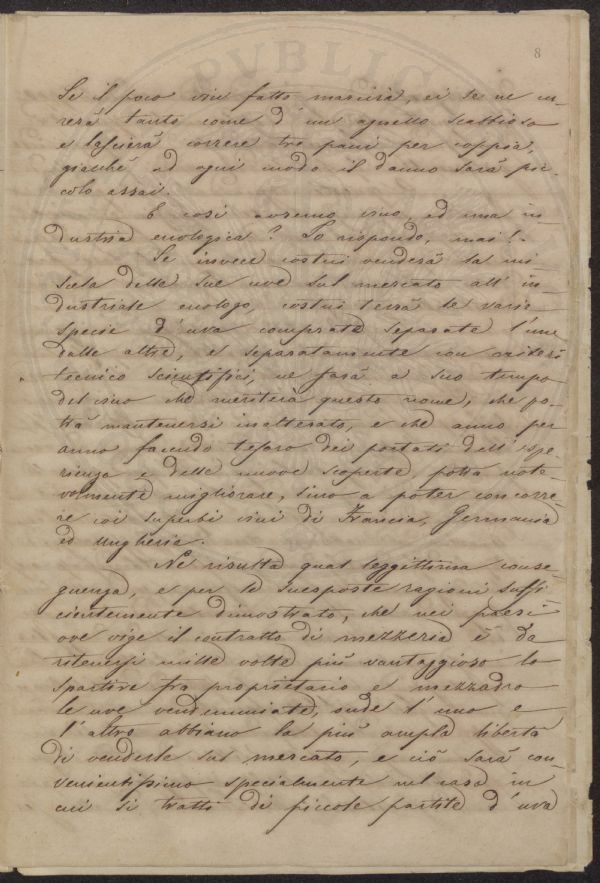 8
Se il poco vin fatto marcirà, ei se ne cu-
rerà tanto come d'un agnello scabbioso
e lascierà correre tre paui per coppia,
giacchè ad ogni modo il danno sarà pic-
colo assai.
E così avremo vino, ed una in-
dustria enologica? Io rispondo, mai!
Se invece costui venderà la mi
scela delle sue uve sul mercato all' in-
dustriale enologo, costui terrà le varie
specie d'uva comprate separate l'une
dalle altre, e separatamente con criterî
tecnico scientifici, ne farà a suo tempo
del vino che meriterà questo nome, che po-
trà mantenersi inalterato, e che anno per
anno facendo tesoro dei portati dell' spe-
rienza e delle nuove scoperte, potrà note-
volmente migliorare, sino a poter concorre-
re coi superbi vini di Francia, Germania
ed Ungheria.
Ne risulta qual leggittima conse-
guenza, e per le suesposte ragioni suffi
cientemente dimostrato, che nei paesi
ove vige il contratto di mezzeria è da
ritenersi mille volte più vantaggioso lo
spartire fra proprietario e mezzadro
le uve vendemmiate, onde l'uno e
l'altro abbiano la più ampla libertà
di venderle sul mercato, e ciò sarà con-
venientissimo specialmente nel caso in
cui si tratti di piccole partite d'uva